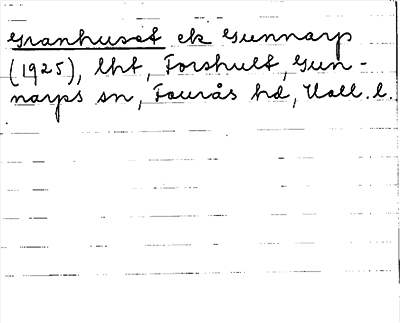 Granhuset ek Gunnarp
(1925), lht, Forshult, Gun-
narps sn, Faurås hd, Hall. l.